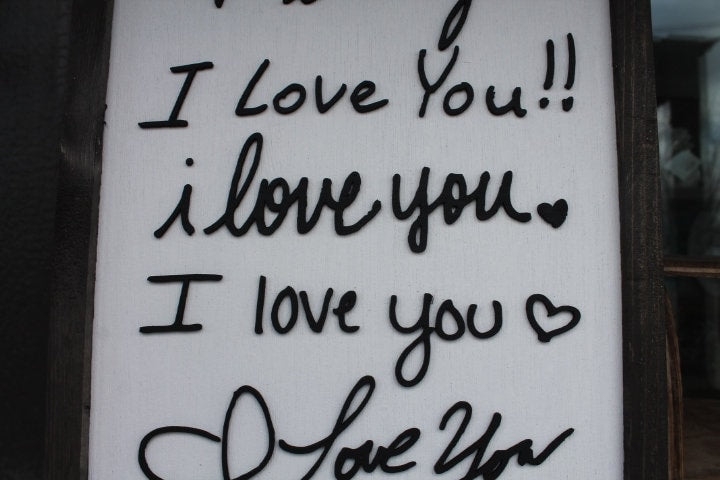 I Love You!!
i love you.♥
I love you ♡
I Love You